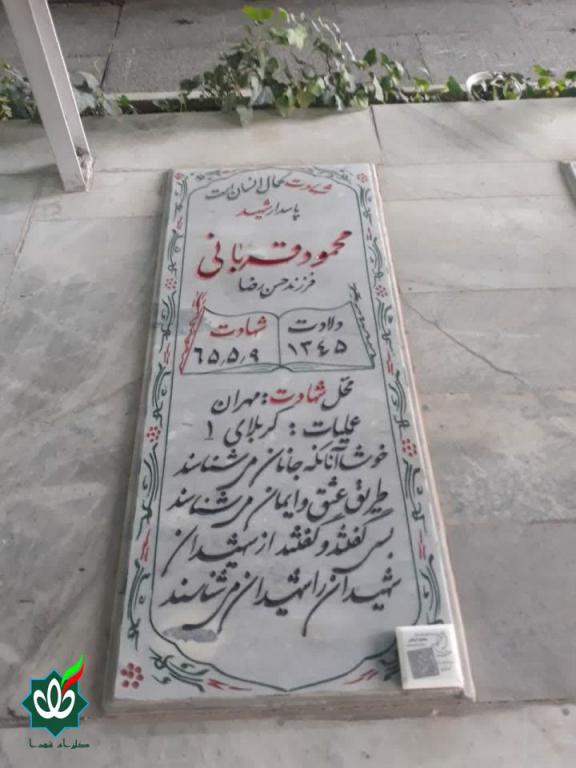 شهادت کمال انسان است
پاسدار شهید
محمود قربانی
فرزند حسن رضا
ولادت
۱۳۴۵
شهادت
۶۵٫۵٫۹
محل شهادت: مهران
عملیات: کربلای ۱
خوشا آنانکه جانان می شناسند
طریق عشق و ایمان می شناسند
بسی گفتند و گفتند از شهیدان
شهیدان را شهیدان می شناسند
گلزار شهدا